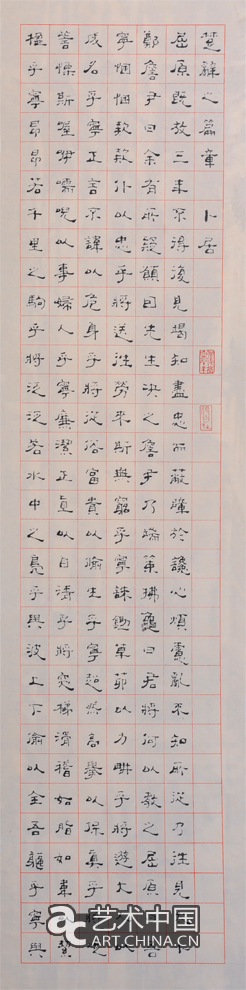 楚辭之篇章 卜居
屈原既放三年不得復見竭知盡忠而蔽障於讒心煩慮亂不知所從乃往見
鄭詹尹曰余有所疑願因先生決之詹尹乃端策拂龜曰君將何以教之屈原
寧悃悃款款朴以忠乎將送往勞來斯無窮乎寧誅鋤草茅以力耕乎將遊大
成名乎寧正言不諱以危身乎將從俗富貴以媮生乎寧超然高舉以保真乎
訾慄斯喔咿嚅唲以事婦人乎寧廉潔正貞以自清乎將突梯滑稽如脂如韋絜
楹乎寧昂昂若千里之駒乎將泛泛若水中之鳧乎與波上下偷以全吾軀乎寧與
艺术中国
ART.CHINA.CN